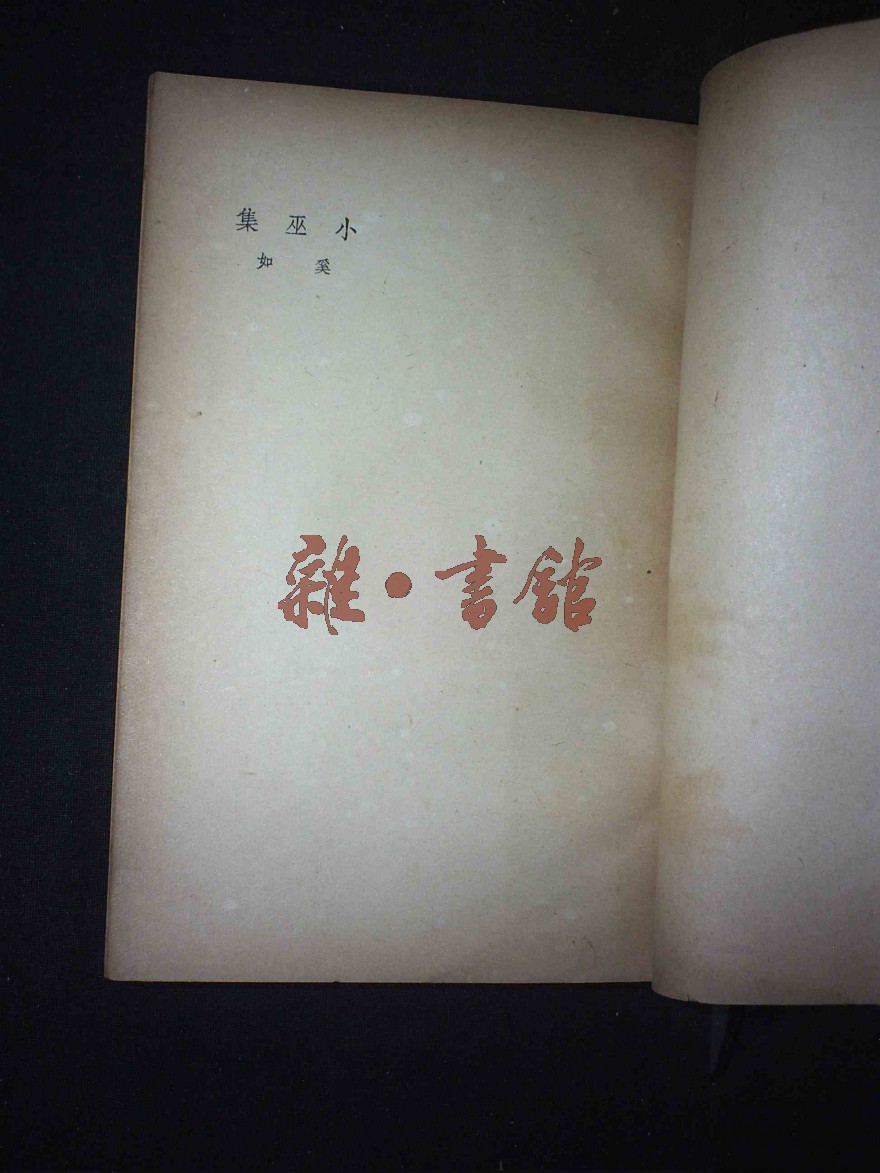 小巫集
奚如
雜·書館